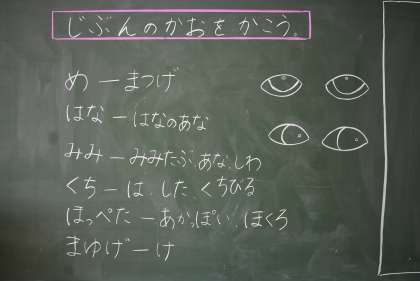 じぶんのかおをかこう。
め ー まつげ
はな ー はなのあな
みみ ー みみたぶ、あな、しわ
くち ー は、した、くちびる
ほっぺた ー あかっぽい、ほくろ
まゆげ ー け